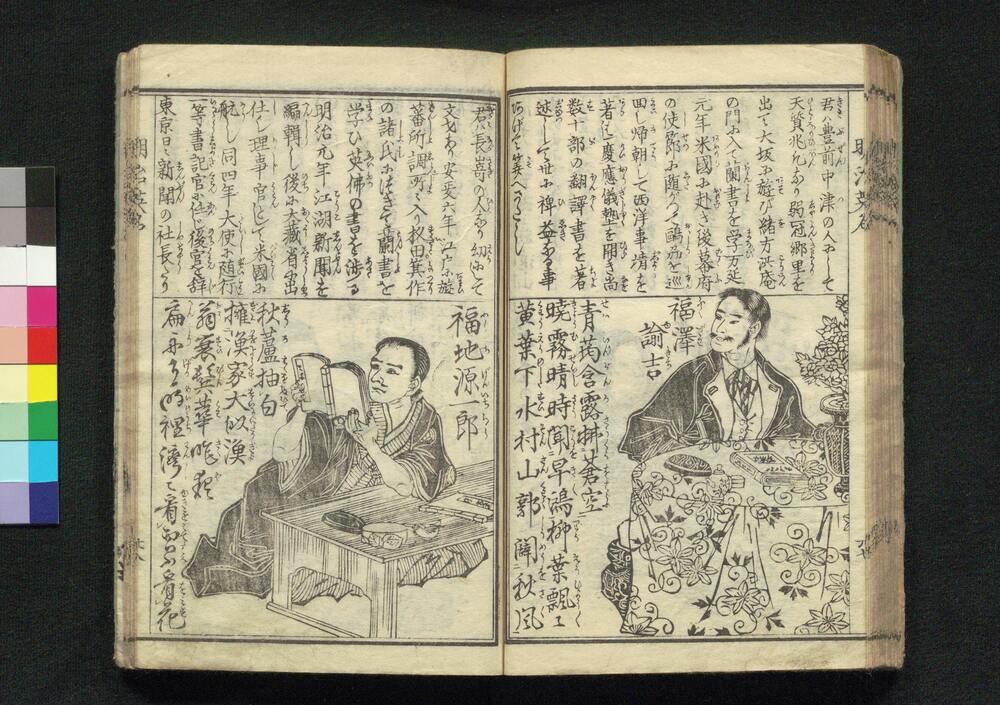 君ハ豊前中津の人にして
天質兆凡なり弱冠郷里を
出て大坂に遊び緒方洪庵
の門に入て蘭書を学ぶ万延
元年米國に赴き後幕府
の使節に随がつて歐品を巡
回し帰朝して西洋事情を
著はし慶應儀塾を開き尚
数十部の翻譯書を著
述して世に裨益ある事
あげて算へがたし
福澤
諭吉
青萬含露拂蒼空
暁霧晴時聞早鴻柳葉飄々
黄葉下水村山郭閙秋風
君ハ長崎の人なり幼にして
文才あり安政六年江戸に遊
蕃所調所に入り杉田箕作
の諸氏につきて蘭書を
学び英佛の書を渉る
明治元年江湖新聞を
編輯し後に大藏省に出
仕し理事官として米國に
航し同四年大使に随行
一等書記官に任じ後官を辞
東京日々新聞の社長たり
福地源一郎
秋蘆抽白
擁漁家大似漁
翁衰鬢華昨夜
扁舟月明裡
看花